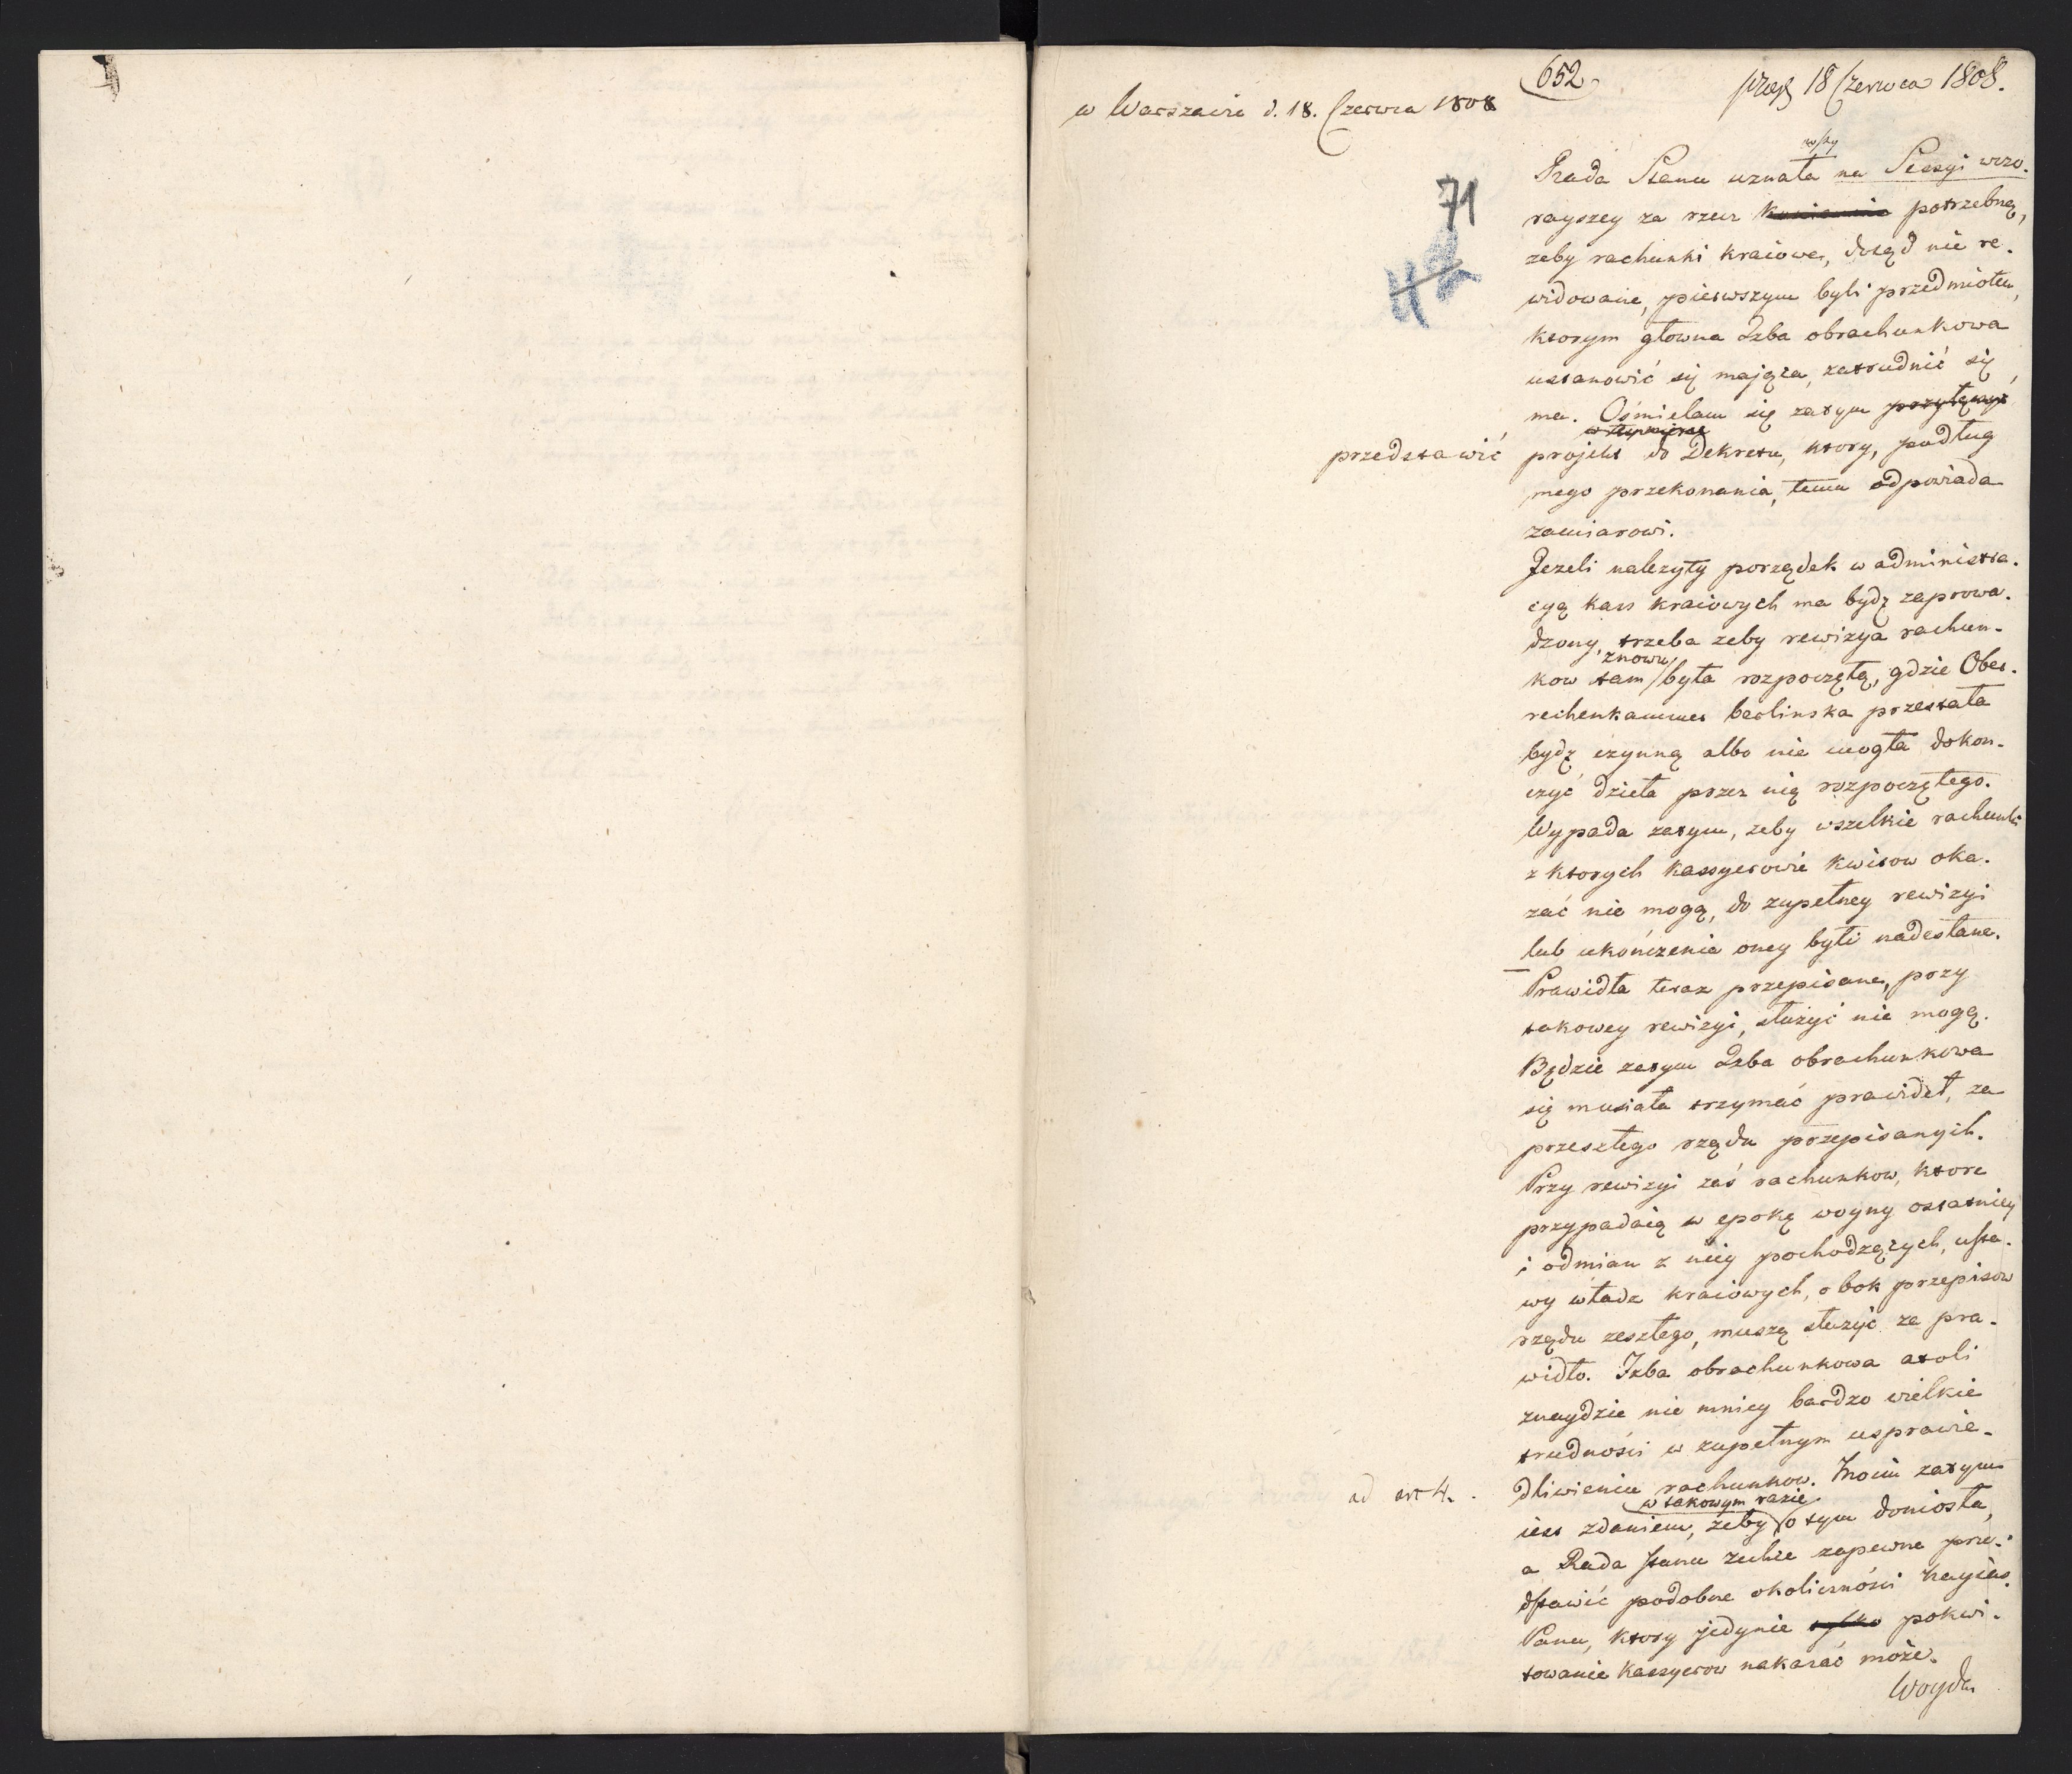 652
w Warszawie d. 18. Czerwca 1808
18 Czerwca 1808.
71
Rada Stanu uznała na Sessyi wczo-
rayszey za rzecz potrzebną,
zeby rachunki kraiowe, dotąd nie re-
widowane, pierwszym byli przedmiotem,
ktorym głowna Izba obrachunkowa
ustanowić się mająca, zatrudnić się
ma. Ośmielam się zatym
przedstawić
projekt do Dekretu, ktory, podług
mego przekonania, temu odpowiada
zamiarowi.
Jezeli nalezyty porządek w administra-
cyą kass kraiowych ma bydz zaprowa-
dzony, trzeba zeby rewizya rachun-
znowu
kow tam była rozpoczętą, gdzie Ober-
rechenkammer berlinska przestała
bydz czynną albo nie mogła dokon-
czyć dzieła przez nią rozpoczętego.
Wypada zatym, zeby wszelkie rachunki
z ktorych kassyerowie kwitow oka-
zać nie mogą, do zupełney rewizyi
lub ukończenia oney byli nadesłane.
Prawidła teraz przepisane, przy
takowey rewizyi, służyć nie mogą.
Będzie zatym Izba obrachunkowa
się musiała trzymać prawideł, za
przeszłego rządu przepisanych.
Przy rewizyi zaś rachunkow, ktore
przypadaią w epokę woyny ostatniey
i odmian z niey pochodzących, usta-
wy władz kraiowych, obok przepisow
rządu zeszłego, muszą służyć za pra-
widło. Izba obrachunkowa atoli
znaydzie nie mniey bardzo wielkie
trudności w zupełnym usprawie-
dliwieniu rachunkow. Moim zatym
ad art 4.
w takowym razie
iest zdaniem, żeby o tym doniosła,
a Rada stanu zechce zapewne prze-
dstawić podobne okoliczności Nayias.
Panu, ktory jedynie tylko pokwi-
towanie kassyerow nakazać może.
Woyda